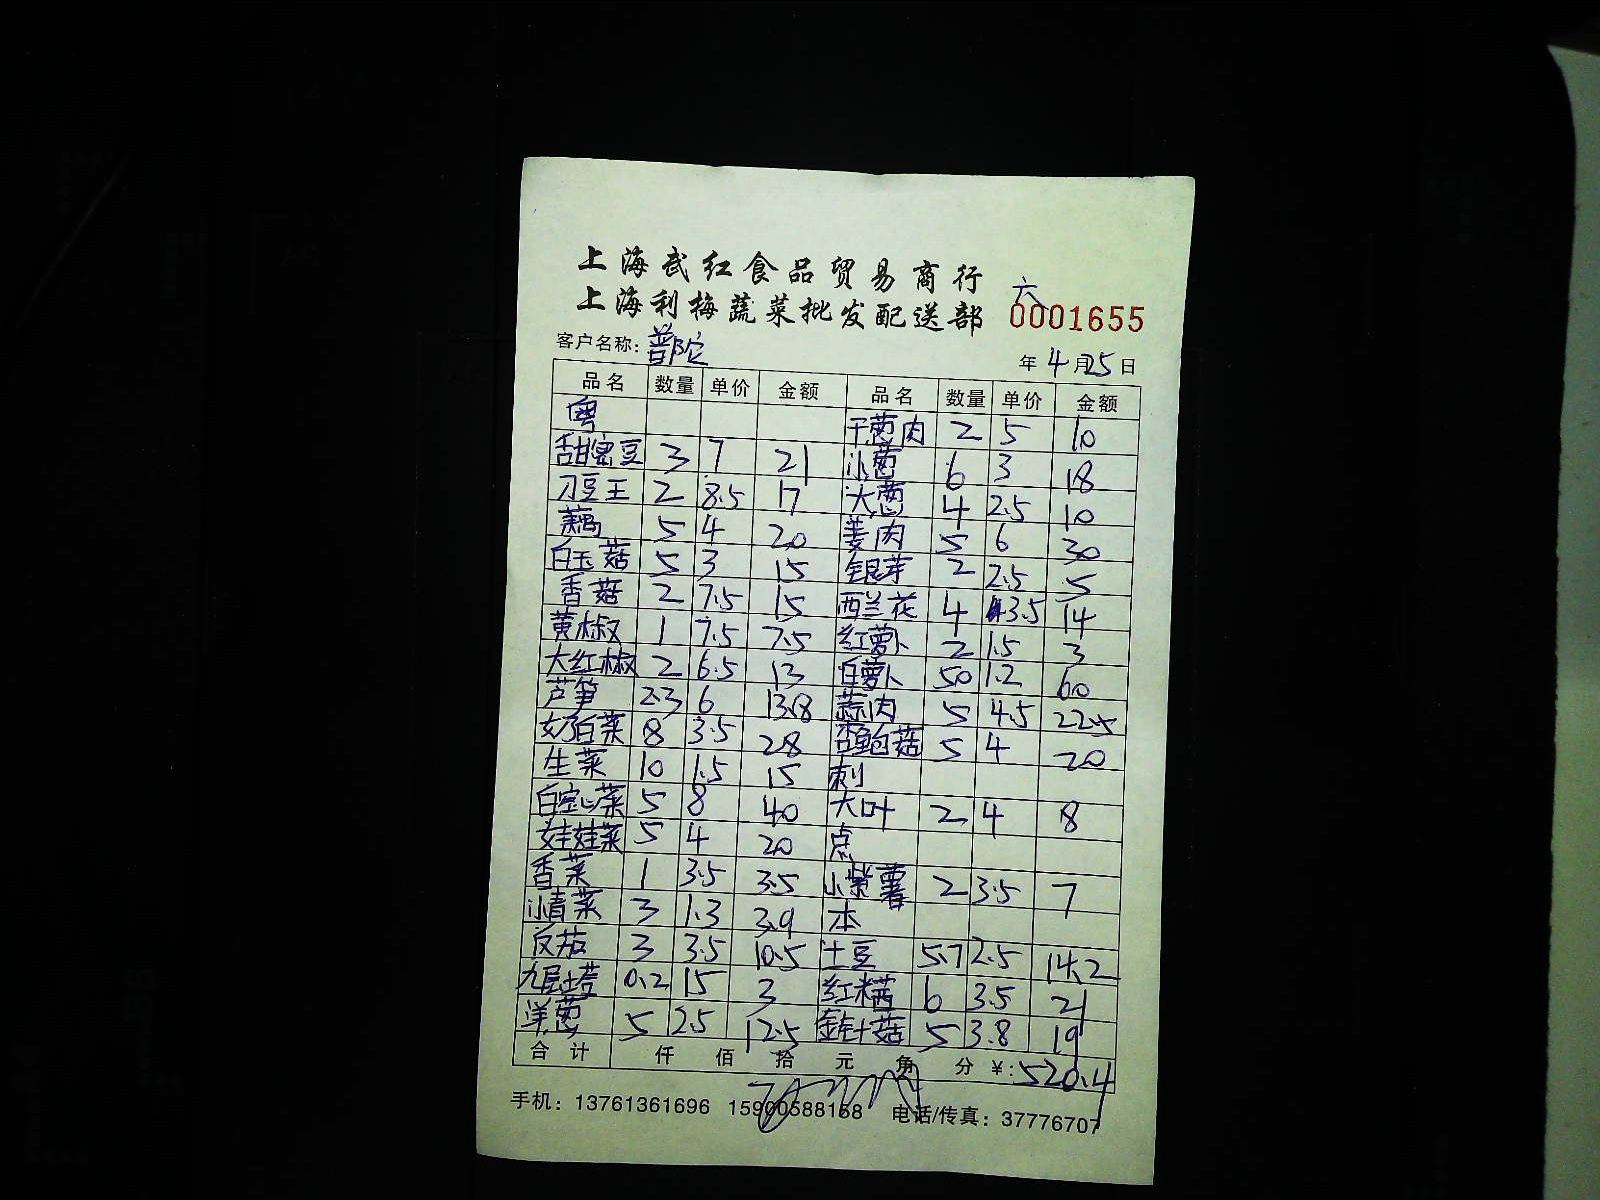 上海武红食品贸易商行
六
上海利梅蔬菜批发配送部 0001655
客户名称：普陀 年4月25日
品名 数量 单价 金额 品名 数量 单价 金额
粤 干葱肉 2 5 10
甜蜜豆 3 7 21 小葱 6 3 18
刀豆王 2 8.5 17 大葱 4 2.5 10
藕 5 4 20 姜肉 5 6 30
白玉菇 5 3 15 银芽 2 2.5 5
香菇 2 7.5 15 西兰花 4 3.5 14
黄椒 1 7.5 7.5 红萝卜 2 1.5 3
大红椒 2 6.5 13 白萝卜 50 1.2 60
芦笋 2.3 6 13.8 蒜肉 5 4.5 22.5
奶白菜 8 3.5 28 杏鲍菇 5 4 20
生菜 10 1.5 15 刺
白空心菜 5 8 40 大叶 2 4 8
娃娃菜 5 4 20 点
香菜 1 3.5 3.5 小紫薯 2 3.5 7
小青菜 3 1.3 3.9 本
反茄 3 3.5 10.5 土豆 5.7 2.5 14.2
九层塔 0.2 15 3 红米茜 6 3.5 21
洋葱 5 2.5 12.5 金针菇 5 3.8 19
合计 仟 佰 拾 元 角 分 ¥：520.4
手机：13761361696 15900588168 电话/传真：37776707